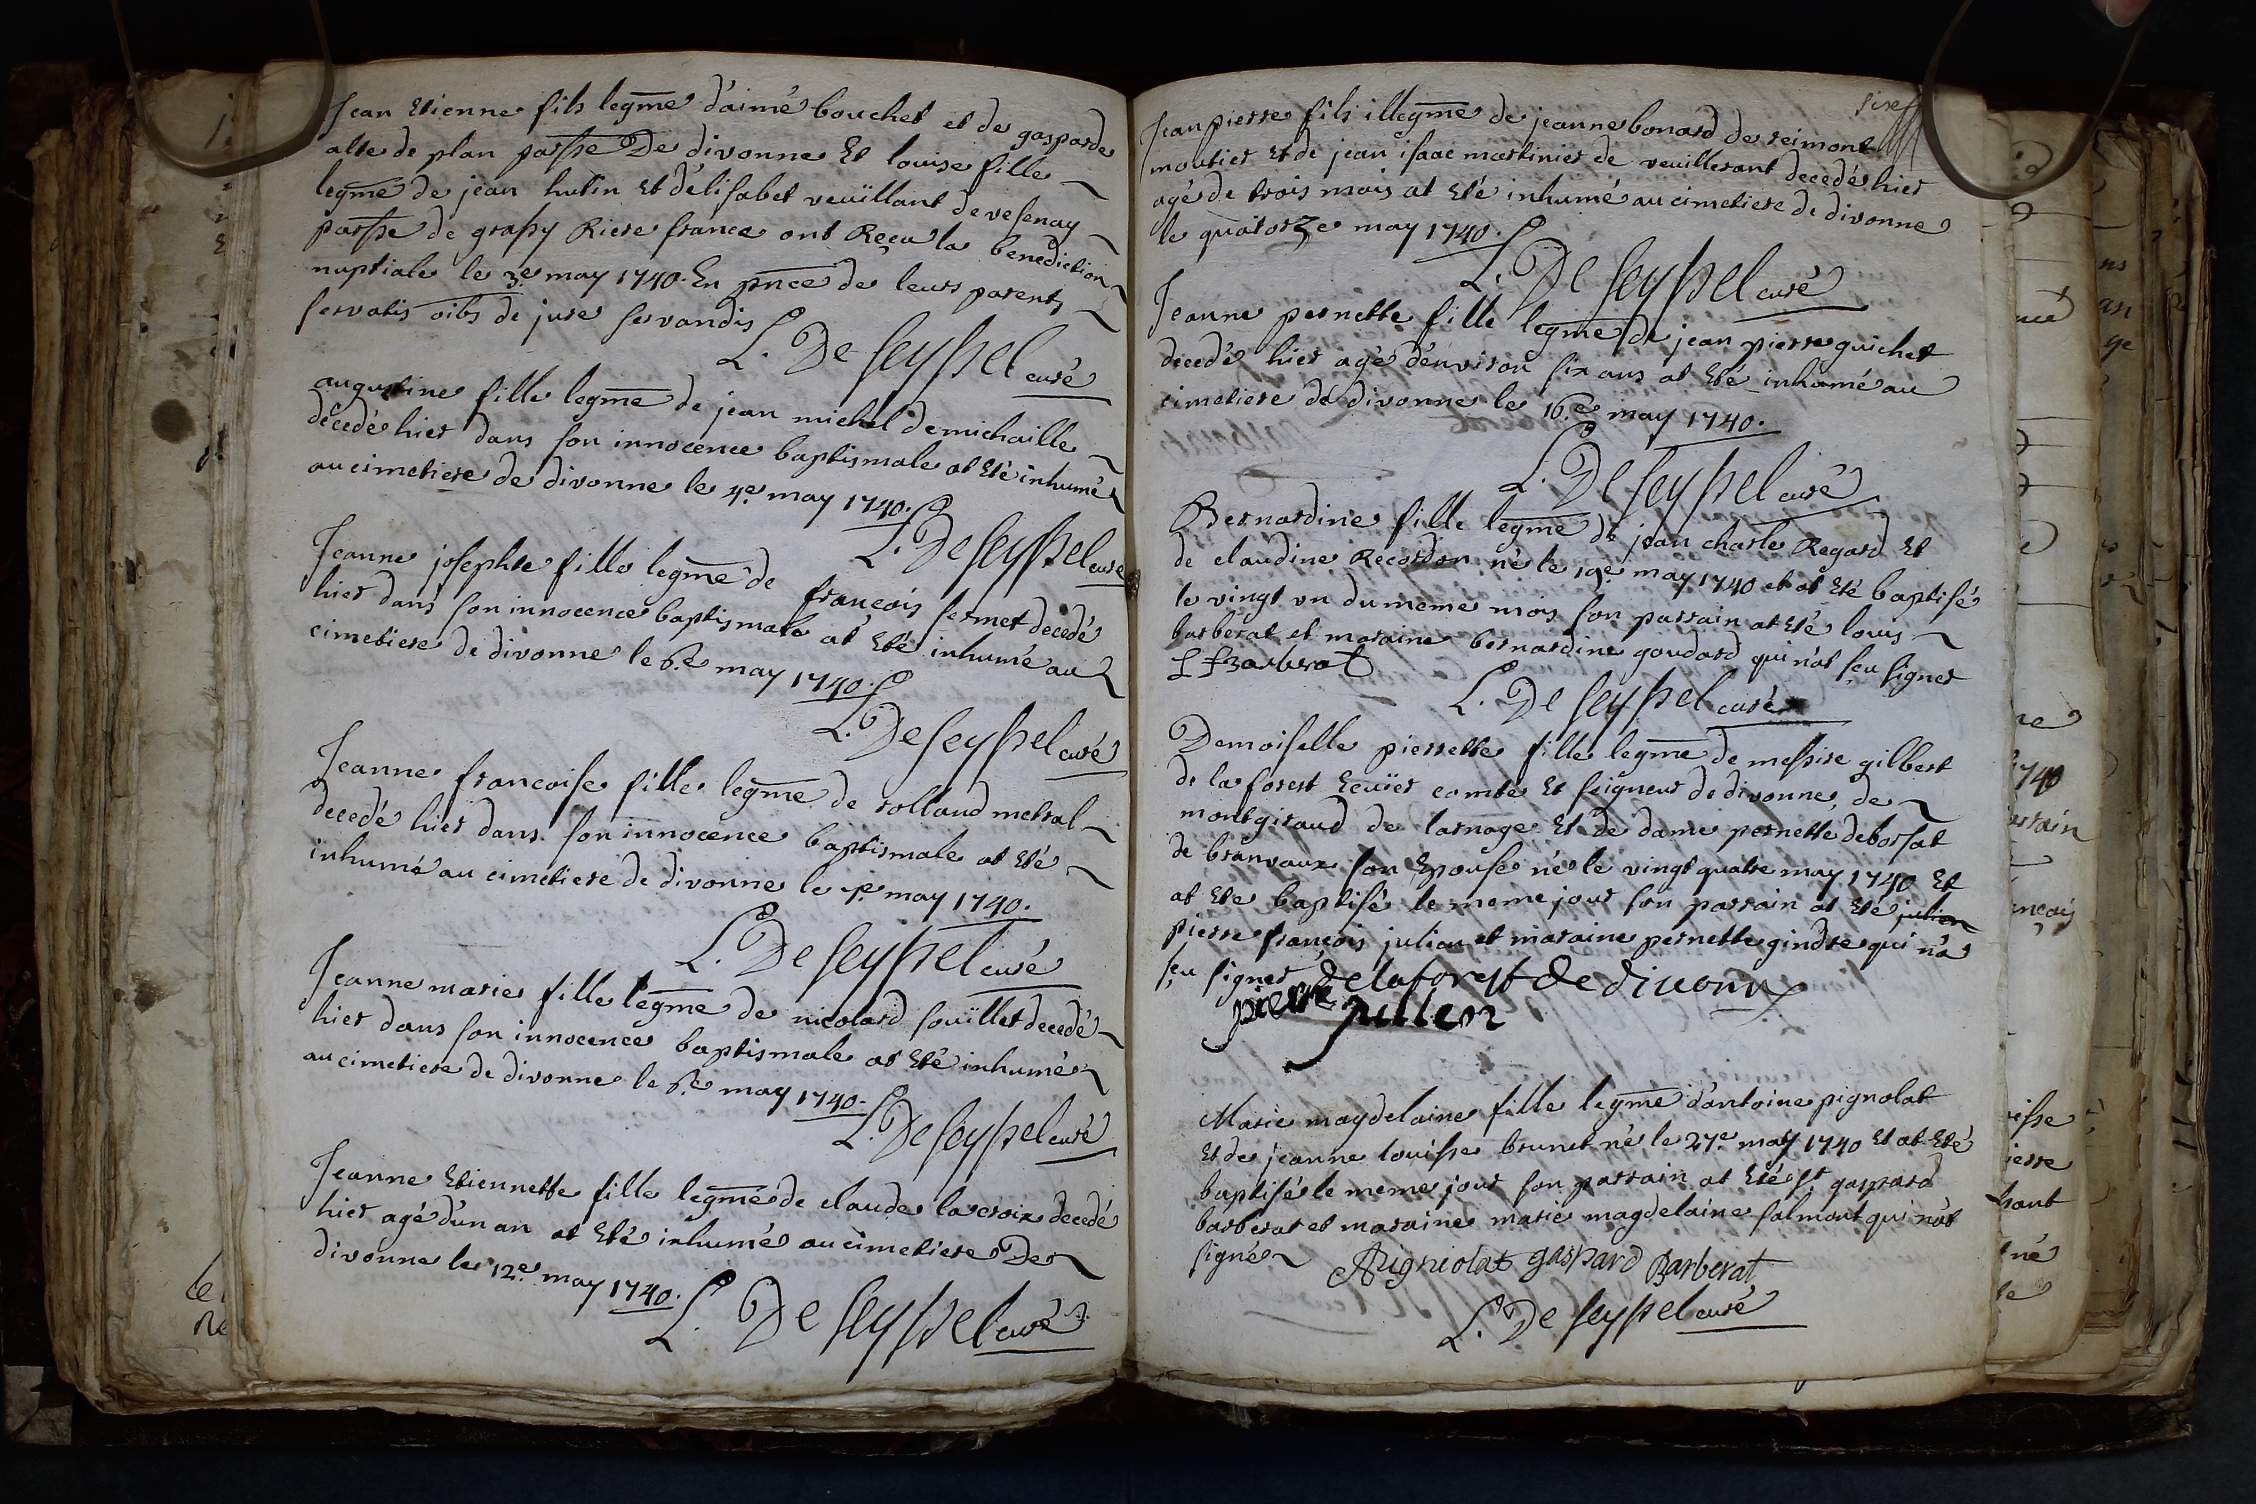 Jean Etienne fils legme d'aimé bouchet et de gasparde
alte de plan parsse De divonne Et louise fille
legme de jean hutin Et d'elisabet veüillant de vesenay
parsse de grassy Riere france ont Reçeu la benediction
nuptiale le 3e may 1740. En pnce de leurs parents
servatis oibs de jure servandis
L. De seyssel curé
augustine fille legme de jean michel demichaille
décedé hier dans son innocence baptismale at Eté inhumé
au cimetiere de divonne le 4e may 1740.
L. De seyssel curé
Jeanne josephte fille legme de françois fermet decedé
hier dans son innocence baptismale at Eté inhumé au
cimetiere de divonne le 6e may 1740.
L. De seyssel curé
Jeanne francoise fille legme de rolland metral
decedé hier dans son innocence baptismale at Eté
inhumé au cimetiere de divonne le 7e may 1740.
L. De seyssel curé
Jeanne marie fille legme de nicolard souïllet decedé
hier dans son innocence baptismale at Eté inhumé
au cimetiere de divonne le 6e may 1740.
L. De seyssel curé
Jeanne Etiennette fille legme de claude lacroix decedé
hier agé d'un an at Eté inhumé au cimetiere De
divonne le 12e may 1740.
L. De seyssel curé
Jean pierre fils illegme de jeanne bonard de reimont
moutier et de jean isaac martinier de veuillerant decedé hier
agé de trois mois at Eté inhumé au cimetiere de divonne
le quatorze may 1740.
L. De seyssel curé
Jeanne pernette fille legme de jean pierre guichet
decedé hier agé d'environ six ans at Eté inhumé au
cimetiere de divonne le 16e may 1740.
L. De seyssel curé
Bernardine fille legme de jean charle Regard Et
de claudine Recordon né le 19e may 1740 et at Eté baptisé
le vingt un du meme mois son parrain at Eté louis
barberat et maraine bernardine goudard qui n'at seu signer
L Barberat
L. De seyssel curé
Demoiselle pierrette fille legme de messire gilbert
de la forest Ecuïer comte Et seigneur de divonne, de
montgiraud de larnage Et de dame pernette deborsat
de branvaux son Epouse né le vingt quatre may 1740 Et
at Ete baptisé le meme jour son parrain at Eté julien
pierre françois julien et maraine pernette gindre qui n'a
seu signer delaforest de divonne
pierre jullien
Marie magdelaine fille legme d'antoine pignolat
Et de jeanne louisse brunet né le 27e may 1740 Et at Eté
baptisé le meme jour son parrain at Eté sr gaspard
barberat et maraine marie magdelaine salmont qui n'at
signé
APigniolat gaspard Barberat
L. De seyssel curé